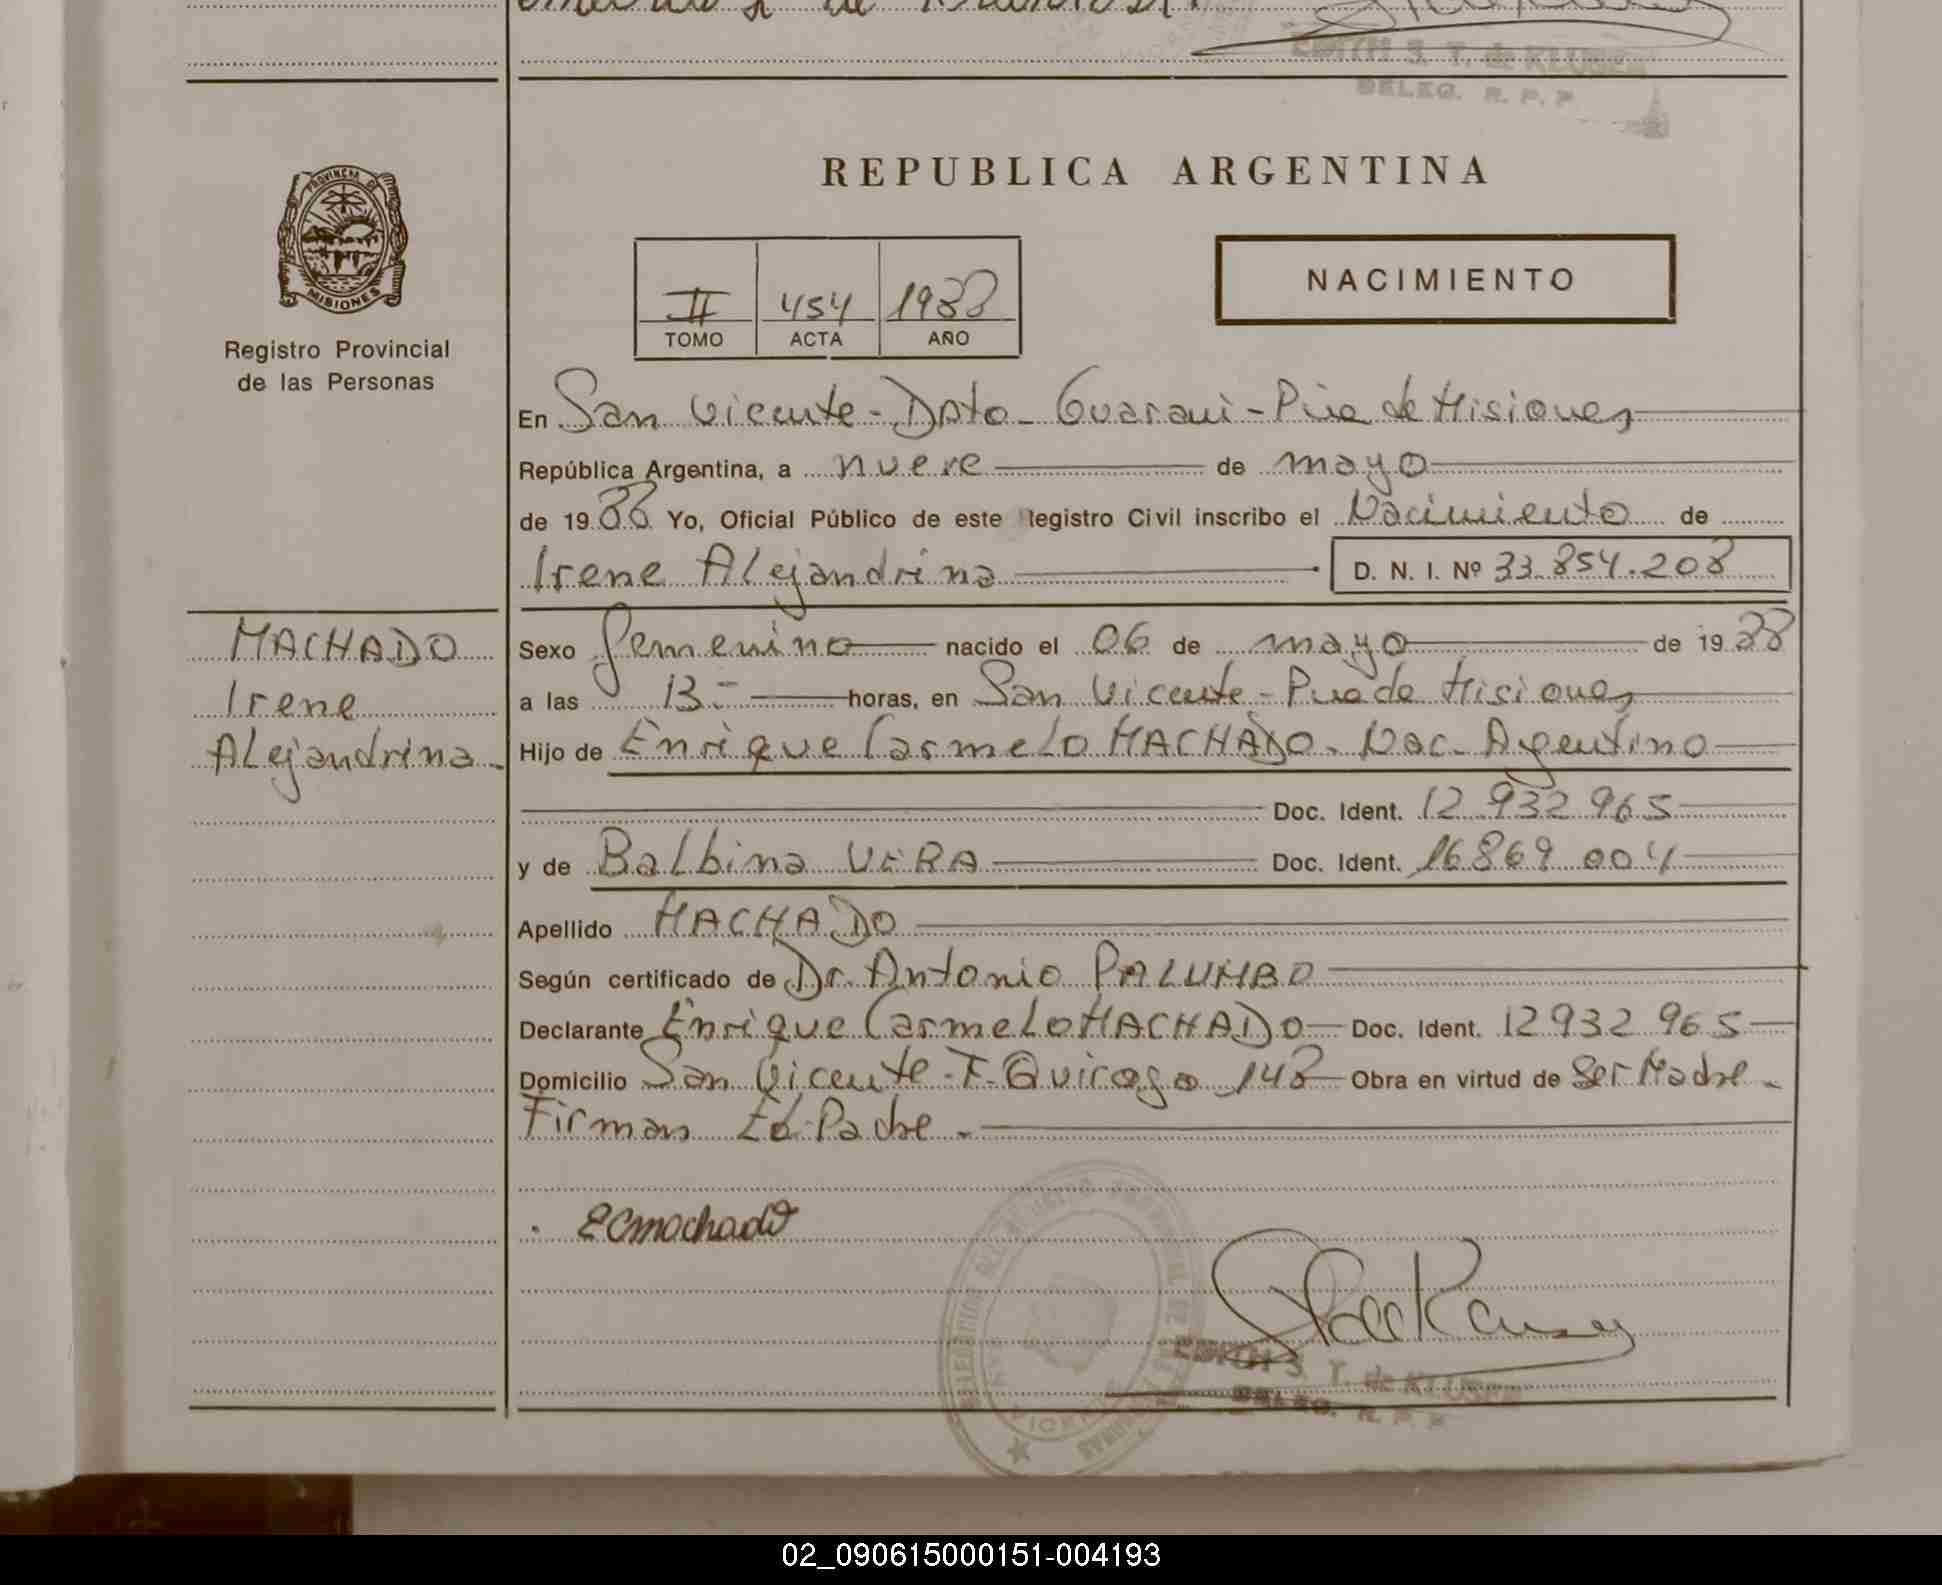 EDITH S. T. de KLUSEN
DELEG. R. P. P.
PROVINCIA DE
MISIONES
Registro Provincial
de las Personas
REPUBLICA ARGENTINA
II 454 1988
TOMO ACTA AÑO
NACIMIENTO
En San Vicente - Dpto - Guarani - Pcia de Misiones
República Argentina, a nueve de mayo
de 1988 Yo, Oficial Público de este Registro Civil inscribo el Nacimiento de
Irene Alejandrina D. N. I. Nº 33.854.208
MACHADO
Irene
Alejandrina.
Sexo femenino nacido el 06 de mayo de 1988
a las 13.- horas, en San Vicente - Pcia de Misiones
Hijo de Enrique Carmelo MACHADO. Nac. Agentino
Doc. Ident. 12 932 965
y de Balbina VERA Doc. Ident. 16 869 004
Apellido MACHADO
Según certificado de Dr. Antonio PALUMBO
Declarante Enrique Carmelo MACHADO Doc. Ident. 12 932 965
Domicilio San Vicente - F. Quiroga 148 Obra en virtud de Ser Madre.
Firman El Padre.
ECmachado
EDITH S. T. de KLUSEN
DELEG. R. P. P.
02_090615000151-004193